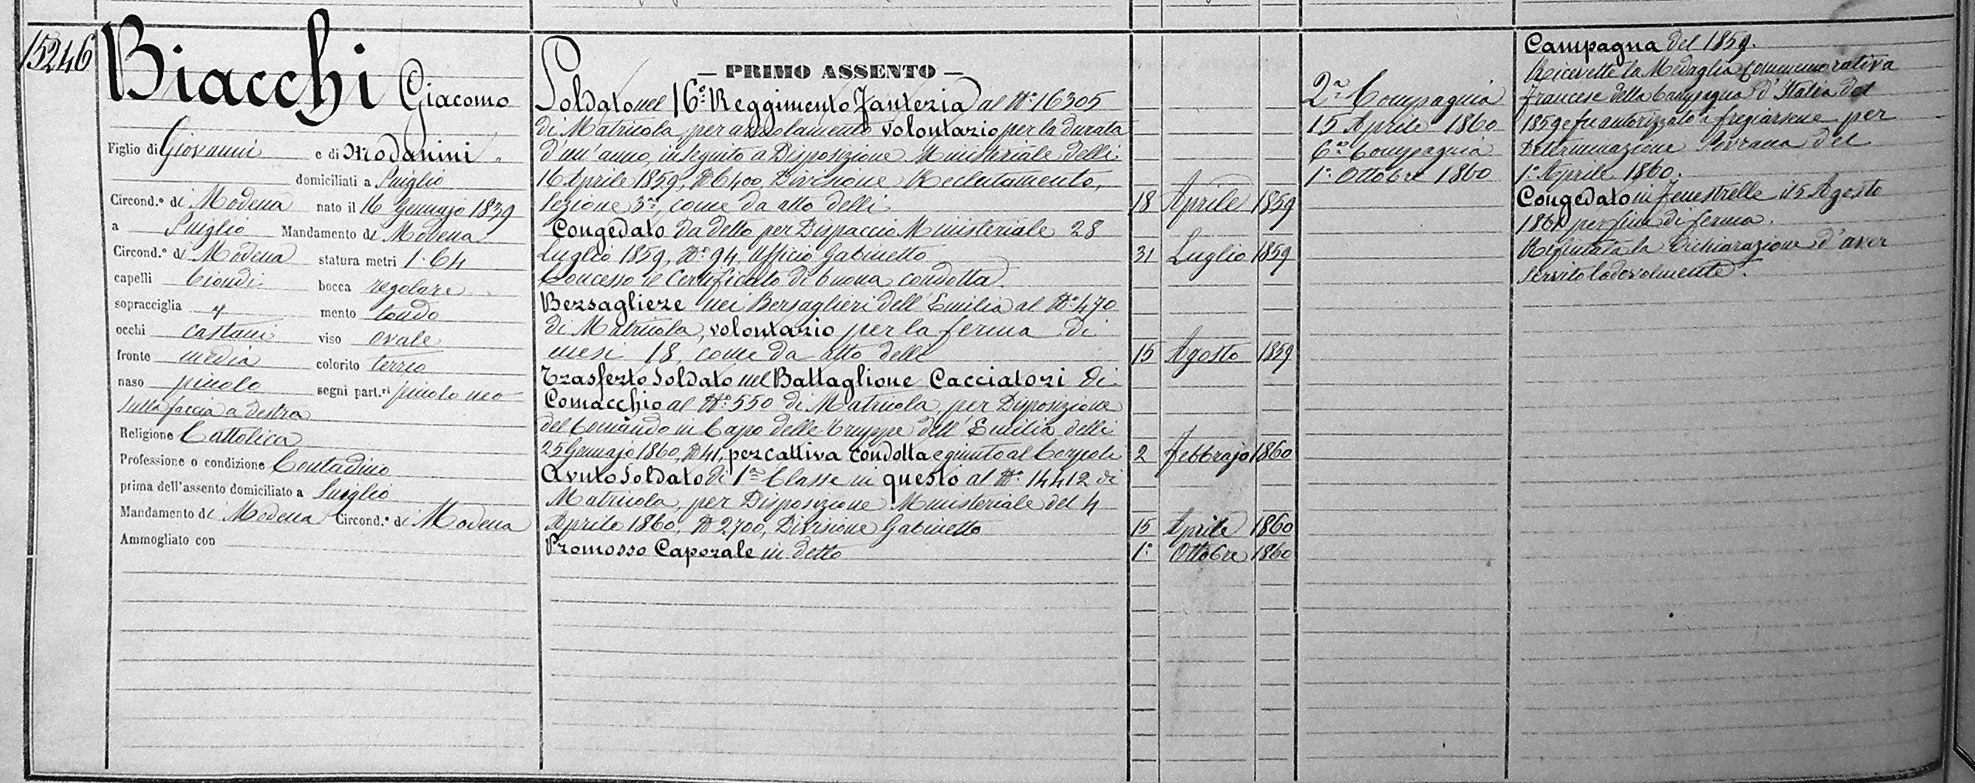 15246
Biacchi Giacomo
Figlio di Giovanni e di Modanini
domiciliati a Puiglio
Circond.º di Modena nato il 16 Gennajo 1839
a Puiglio Mandamento di Modena
Circond.º di Modena statura metri 1.64
capelli biondi bocca regolare
sopracciglia mento tondo
occhi castani viso ovale
fronte media colorito terreo
naso piccolo segni part.ri piccolo neo
sulla faccia a destra
Religione Cattolica
Professione o condizione Contadino
prima dell'assento domiciliato a Puiglio
Mandamento di Modena Circond.º di Modena
Ammogliato con
— PRIMO ASSENTO —
Soldato nel 16º Reggimento Fanteria al Nº 16305
di Matricola, per arruolamento volontario per la durata
d'un'anno, in seguito a Disposizione Ministeriale delli
16 Aprile 1859, Nº 6400, Divisione Reclutamento,
sezione 3ª, come da atto delli 18 Aprile 1859
Congedato da detto per Dispaccio Ministeriale 28
Luglio 1859, Nº 94, Ufficio Gabinetto 31 Luglio 1859
Concesso le Certificato di buona condotta.
Bersagliere nei Bersaglieri dell'Emilia al Nº 470
di Matricola, volontario per la ferma di
mesi 18, come da atto delli 15 Agosto 1859
Trasferto Soldato nel Battaglione Cacciatori di
Comacchio al Nº 550 di Matricola, per Disposizione
del Comando in Capo delle Truppe dell'Emilia delli
25 Gennajo 1860, Nº 41, per cattiva condotta e giunto al Corpo li 2 Febbrajo 1860
Avuto Soldato di 1ª Classe in questo al Nº 14412 di
Matricola, per Disposizione Ministeriale del 4
Aprile 1860, Nº 2700, Divisione Gabinetto 15 Aprile 1860
Promosso Caporale in detto 1º Ottobre 1860
2ª Compagnia
15 Aprile 1860
6ª Compagnia
1º Ottobre 1860
Campagna del 1859.
Ricevette la Medaglia commemorativa
Francese della Campagna d'Italia del
1859 e fu autorizzato a fregiarsene per
Determinazione Sovrana del
1º Aprile 1860.
Congedato in Fenestrelle il 5 Agosto
1861 per fine di ferma.
la Dichiarazione d'aver
servito lodevolmente.